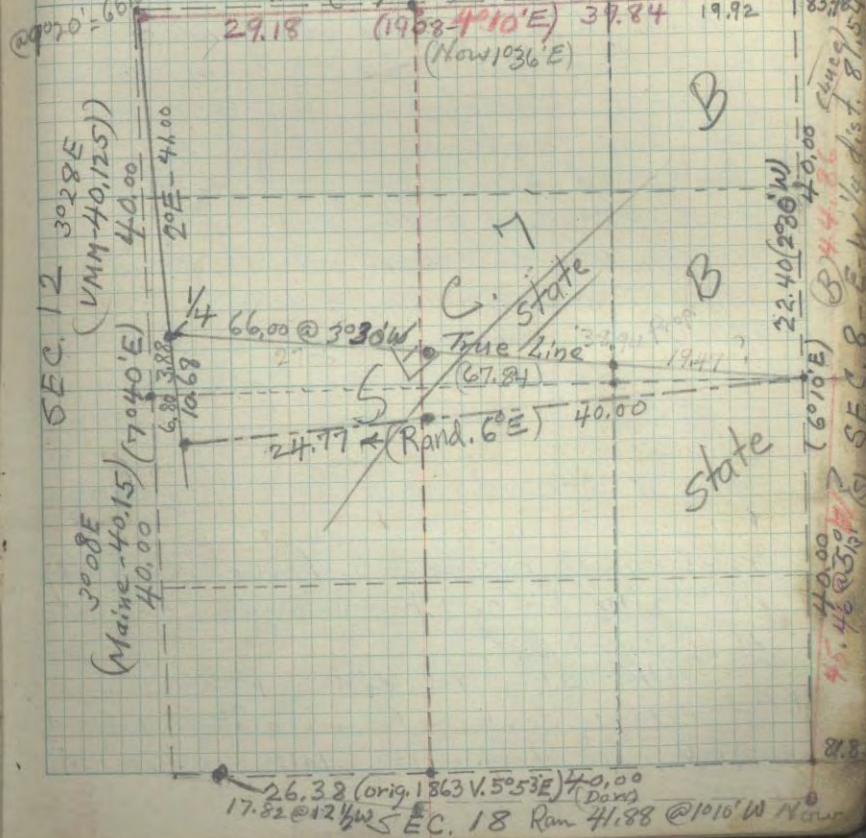 29.18 (1908-4°10'E) 39.84 19.92
(Now 1°36'E)
B
SEC. 12
3°28E
(VMM-40,125))
40.00
2°E - 41.00
22.40 (2°30'W)
40.00
C. 7
State
B
1/4
66.00 @ 3°30'W
True Line
(67.84)
19.47 ?
3.88
6.80
10.68
(7°40'E)
S
24.77 (Rand. 6°E) 40.00
(6°10'E)
State
3°08E
(Maine-40.15)
40.00
40.00
SEC. 8
26.38 (orig. 1863 V. 5°53'E) 40.00
17.82 @ 12 1/2 W SEC. 18 Ran 41.88 @ 1°10' W Now